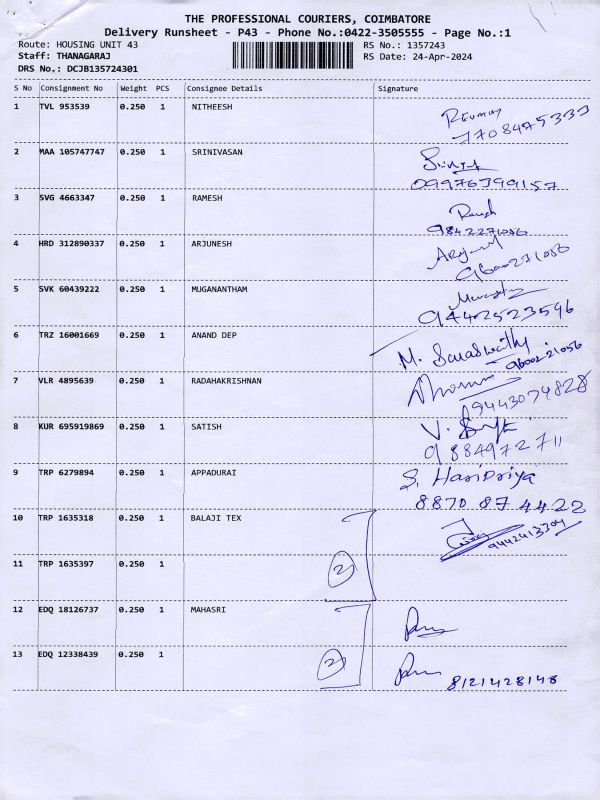 THE PROFESSIONAL COURIERS, COIMBATORE
Delivery Runsheet - P43 - Phone No.:0422-3505555 - Page No.:1
Route: HOUSING UNIT 43 RS No.: 1357243
Staff: THANAGARAJ RS Date: 24-Apr-2024
DRS No.: DCJB135724301
S No Consignment No Weight PCS Consignee Details Signature
1 TVL 953539 0.250 1 NITHEESH
7708475333
2 MAA 105747747 0.250 1 SRINIVASAN
09976399157
3 SVG 4663347 0.250 1 RAMESH Ramesh
9842271056
4 HRD 312890337 0.250 1 ARJUNESH
9600271056
5 SVK 60439222 0.250 1 MUGANANTHAM
9442523596
6 TRZ 16001669 0.250 1 ANAND DEP M. Saraswathy
9600221056
7 VLR 4895639 0.250 1 RADAHAKRISHNAN
9443074828
8 KUR 695919869 0.250 1 SATISH V.
9884972711
9 TRP 6279894 0.250 1 APPADURAI S. HariPriya
8870 87 4422
10 TRP 1635318 0.250 1 BALAJI TEX
9442413304
11 TRP 1635397 0.250 1 2
12 EDQ 18126737 0.250 1 MAHASRI
13 EDQ 12338439 0.250 1 2
8121428148